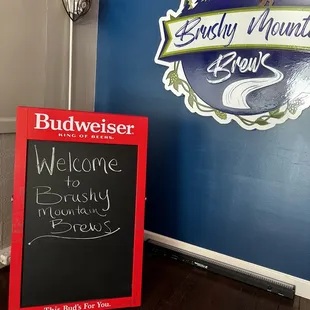 Brushy Mount
Brews
Budweiser
KING OF BEERS.
Welcome
to
Brushy
Mountain
Brews
This Bud's For You.